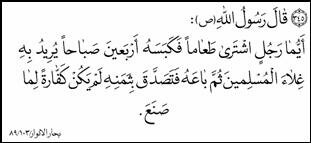 (٣٤٥) قَالَ رَسُولُ اللهِ (ص):
أَيُّمَا رَجُلٍ اشْتَرَىٰ طَعَاماً فَكَبَسَهُ أَرْبَعِينَ صَبَاحاً يُرِيدُ بِهِ
غِلَاءَ الْمُسْلِمِينَ ثُمَّ بَاعَهُ فَتَصَدَّقَ بِثَمَنِهِ لَمْ يَكُنْ كَفَّارَةً لِمَا
صَنَعَ.
بحار الانوار ٨٩/١٠٣